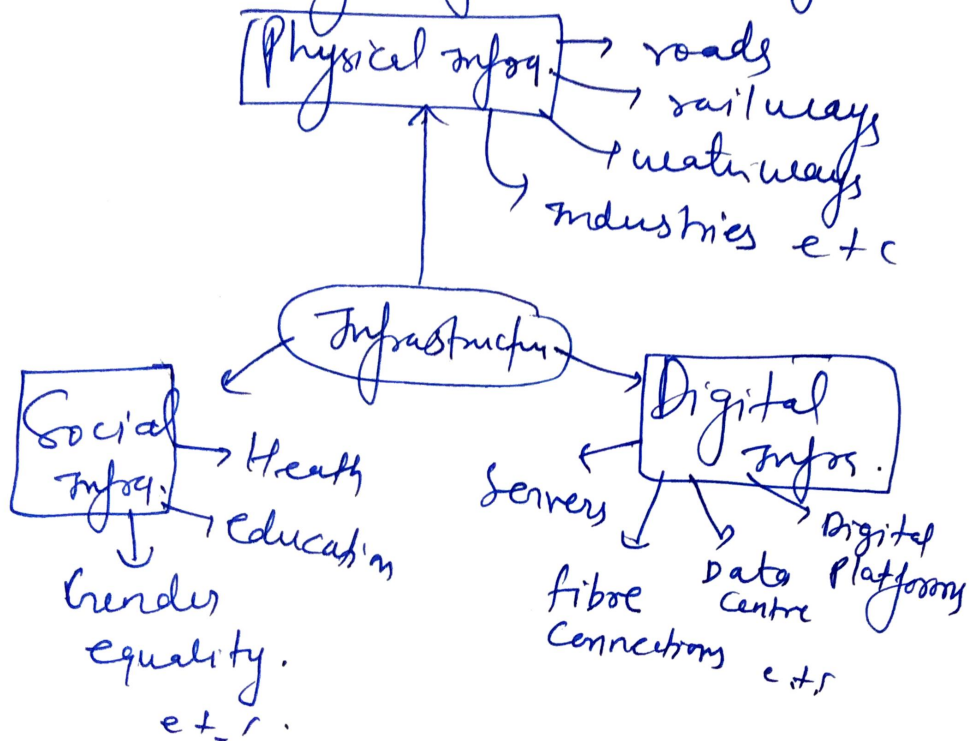 Physical Infra.
roads
railways
waterways
Industries etc
Infrastructure
Social
Infra.
Heath
education
Gender
equality.
etc.
Digital
Infra.
Servers
fibre
Connections
Data
Centre
Digital
Platforms
etc